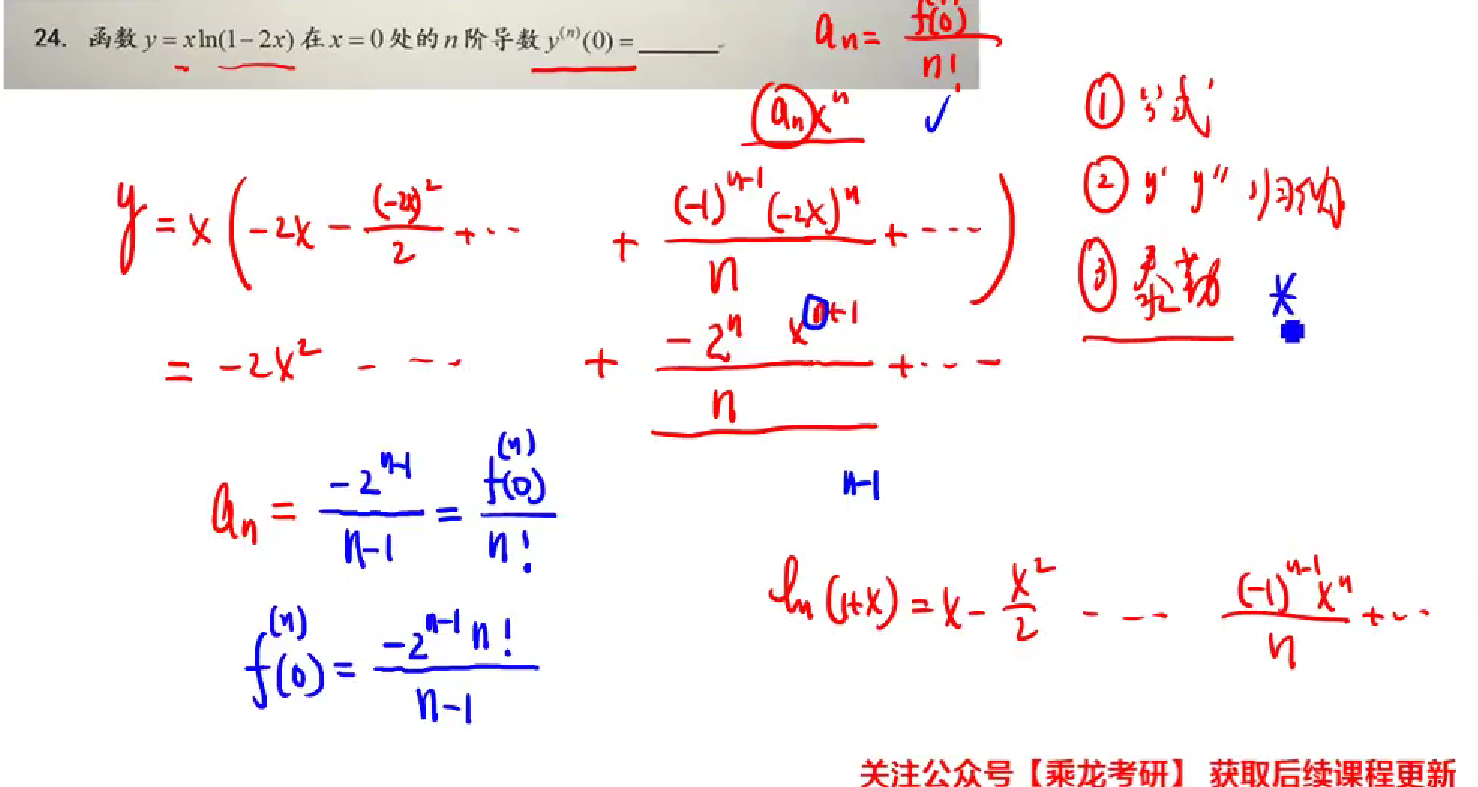 24. 函数 y = xln(1-2x) 在 x = 0 处的 n 阶导数 y⁽ⁿ⁾(0) = ______.
aₙ = f⁽ⁿ⁾(0) / n!
aₙxⁿ ✓
① 公式
② y' y'' 归纳
③ 泰勒 *
y = x(-2x - (-2x)²/2 + ··· + (-1)ⁿ⁻¹(-2x)ⁿ/n + ···)
= -2x² - ··· + -2ⁿ xⁿ⁺¹/n + ···
n-1
aₙ = -2ⁿ⁻¹/(n-1) = f⁽ⁿ⁾(0)/n!
ln(1+x) = x - x²/2 - ··· (-1)ⁿ⁻¹xⁿ/n + ···
f⁽ⁿ⁾(0) = -2ⁿ⁻¹ n!/(n-1)
关注公众号【乘龙考研】 获取后续课程更新